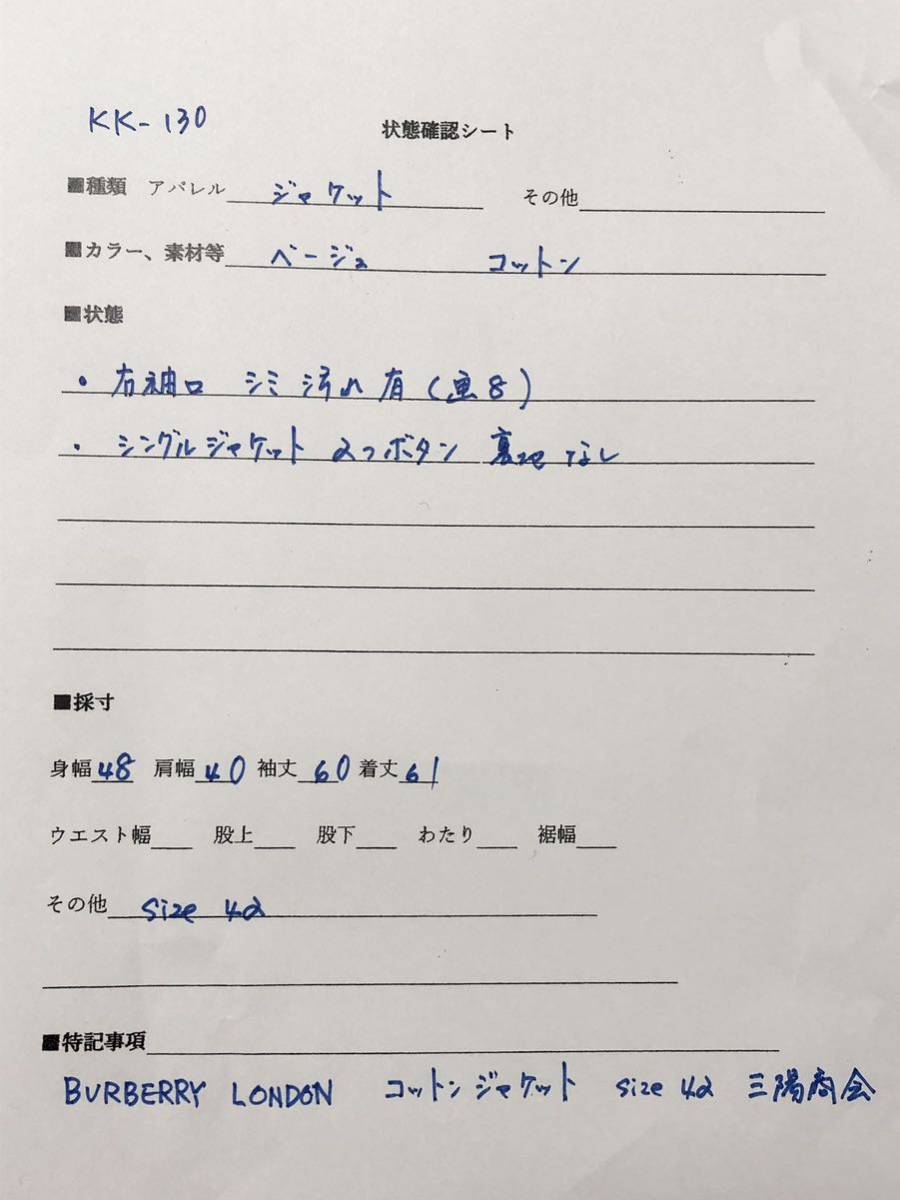 KK-130
状態確認シート
■種類 アパレル ジャケット その他
■カラー、素材等 ベージュ コットン
■状態
・右袖口 シミ汚れ有(画8)
・シングルジャケット 2つボタン 裏地なし
■採寸
身幅48 肩幅40 袖丈60 着丈61
ウエスト幅 股上 股下 わたり 裾幅
その他 size 42
■特記事項
BURBERRY LONDON コットンジャケット size 42 三陽商会